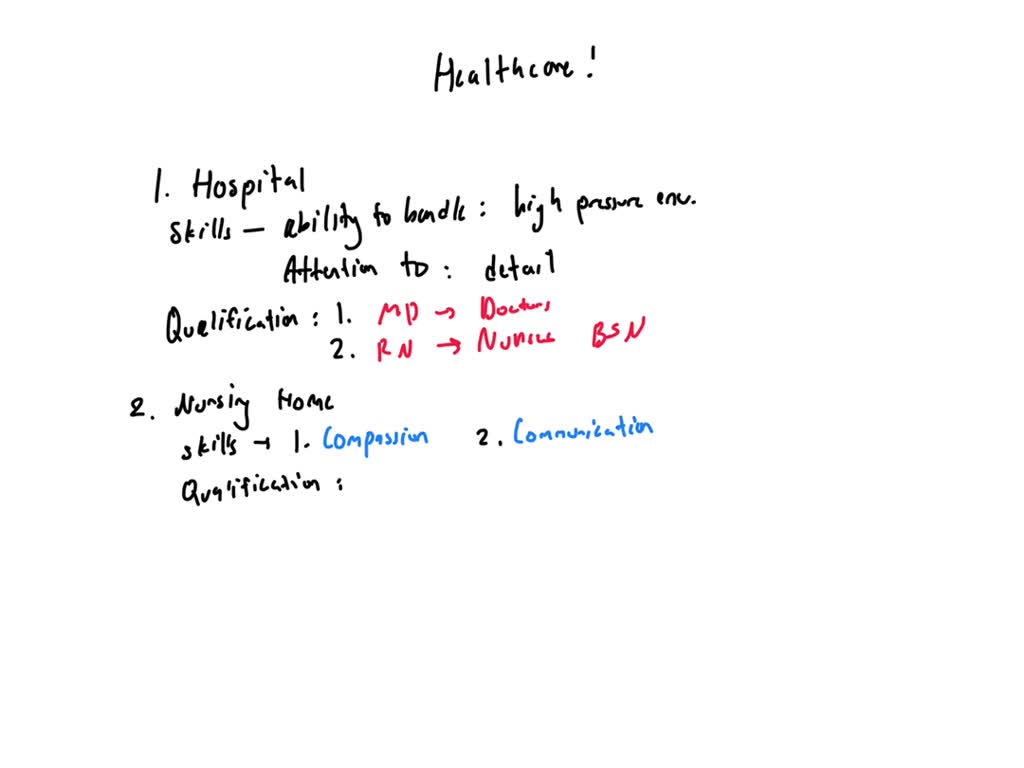 Healthcare!
1. Hospital
Skills — ability to handle : high pressure env.
Attention to : detail
Qualification : 1. MD → Doctors
2. RN → Nurses BSN
2. Nursing Home
skills → 1. Compassion 2. Communication
Qualification :